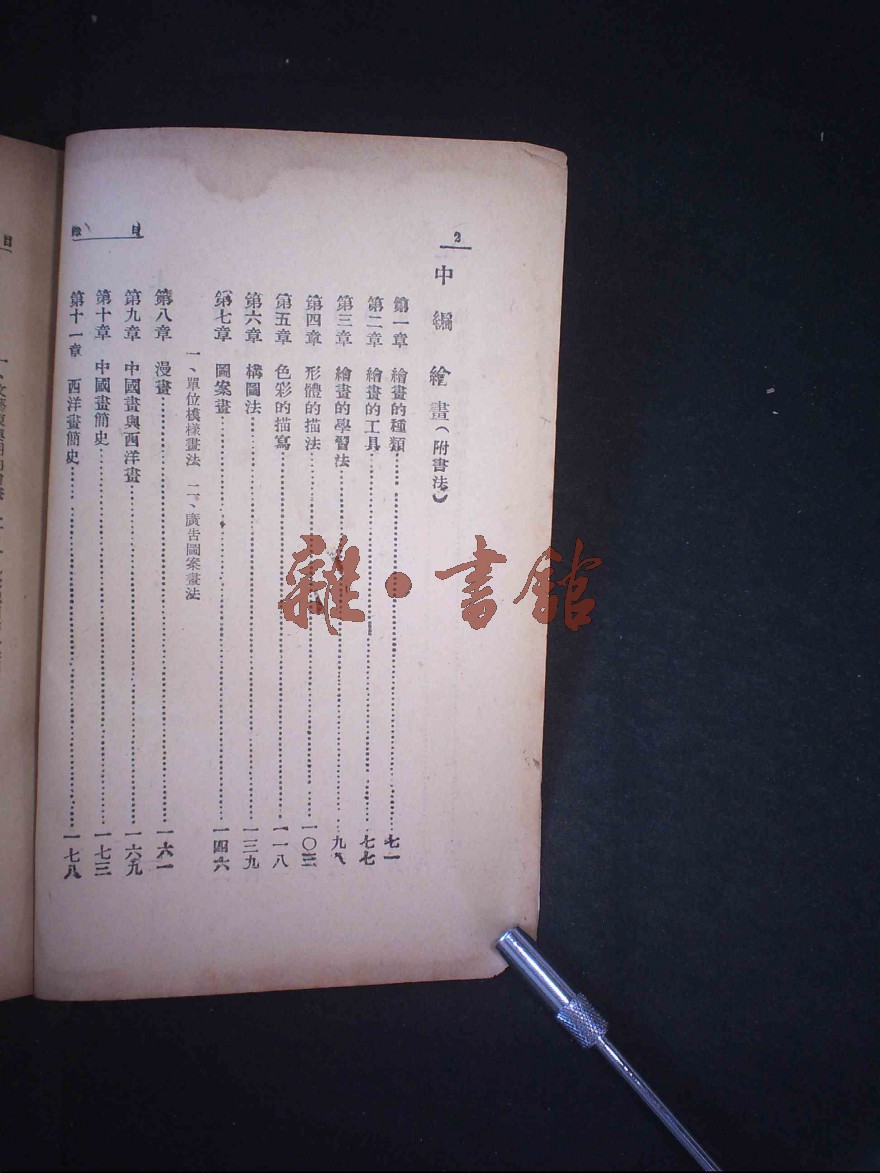 2
目錄
中編 繪畫(附書法)
第一章 繪畫的種類……七一
第二章 繪畫的工具……七七
第三章 繪畫的學習法……九八
第四章 形體的描法……一〇三
第五章 色彩的描寫……一一八
第六章 構圖法……一三九
第七章 圖案畫……一四六
一、單位模樣畫法 二、廣告圖案畫法
第八章 漫畫……一六一
第九章 中國畫與西洋畫……一六九
第十章 中國畫簡史……一七三
第十一章 西洋畫簡史……一七八
目
雜·書館